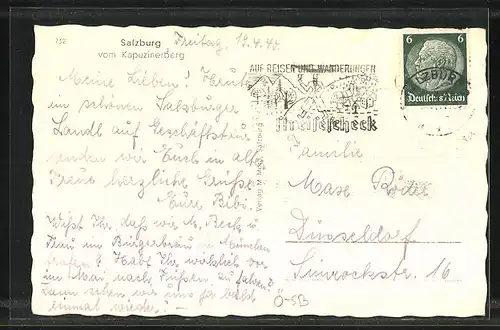 752
Salzburg
vom Kapuzinerberg
Freitag, 19.4.40.
Meine Lieben! Heute
im schönen Salzburger
Landl auf Geschäftstour
senden wir Euch in alter
Treue herzliche Grüße
Eure Bibi.
Wißt Ihr, daß wir H. Beck u.
Frau im Bürgerbräu in München
trafen? Habt Ihr wirklich vor
im Mai nach Füssen zu fahren?
Dann sehen wir uns ja bald
einmal wieder. —
AUF REISEN UND WANDERUNGEN
Postreisescheck
6 6
Deutsches Reich
Familie
Düsseldorf
Simrockstr. 16
Ö-SB